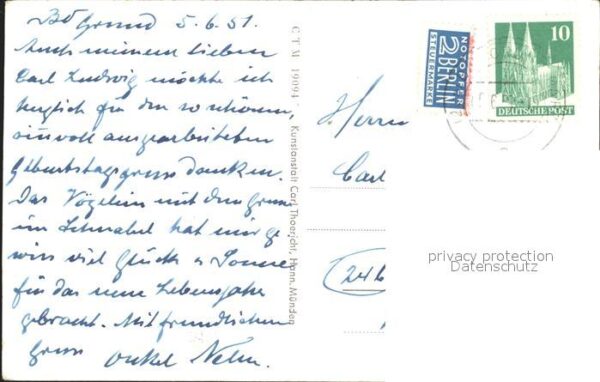 Bd Grund 5.6.51.
Auch meinem lieben
Carl Ludwig möchte ich
herzlich für den so schönen,
sinnvoll ausgearbeiteten
Geburtstagsgruss danken.
Das Vöglein mit dem Gruss
im Schnabel hat mir ge-
wiss viel Glück u Sonne
für das neue Lebensjahr
gebracht. Mit freundlichem
Gruss Onkel
C T M 19094
Kunstanstalt Carl Thoericht, Hann. Münden
NOTOPFER
2 BERLIN
STEUERMARKE
10
DEUTSCHE POST
Herrn
Carl
(24b
privacy protection
Datenschutz